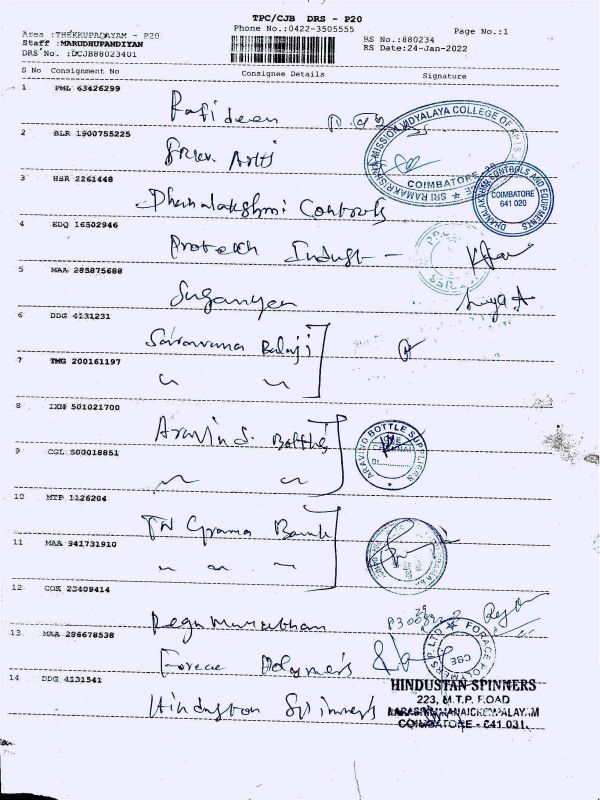 TPC/CJB DRS - P20
Area :THEKKUPADAYAM - P20
Phone No.:0422-3505555
Page No.:1
Staff :MARUDHUPANDIYAN
RS No.:880234
DRS No. :DCJB88023401
RS Date:24-Jan-2022
S No Consignment No Consignee Details Signature
1 PML 63426299
2 BLR 1900755225
3 HSR 2261448
Dhanalakshmi Controls
SRI RAMAKRISHNA MISSION VIDYALAYA COLLEGE OF
COIMBATORE
DHANALAKSHMI CONTROLS AND EQUIPMENTS
COIMBATORE
641 020
4 EDQ 16502946
5 MAA 285875688
Suganya
6 DDG 4131231
Saravana Balaji
7 TMG 200161197
8 IXM 501021700
Aravind Bottles
ARAVIND BOTTLE SUPPLIERS
9 CGL 800018851
10 MTP 1126204
TN Grama Bank
11 MAA 941731910
12 COK 23409414
13 MAA 286678538
Forece Polymers
FORACE POLYMERS
CBE
14 DDG 4131541
Hindustan Spinners
HINDUSTAN SPINNERS
223, M.T.P. ROAD
NARASIMMANAICKENPALAYAM
COIMBATORE - 641 031.